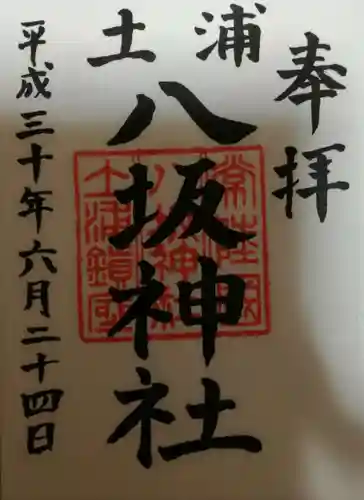 奉拝
浦土
八坂神社
平成三十年六月二十四日
常陸國
八坂神社
土浦鎮座